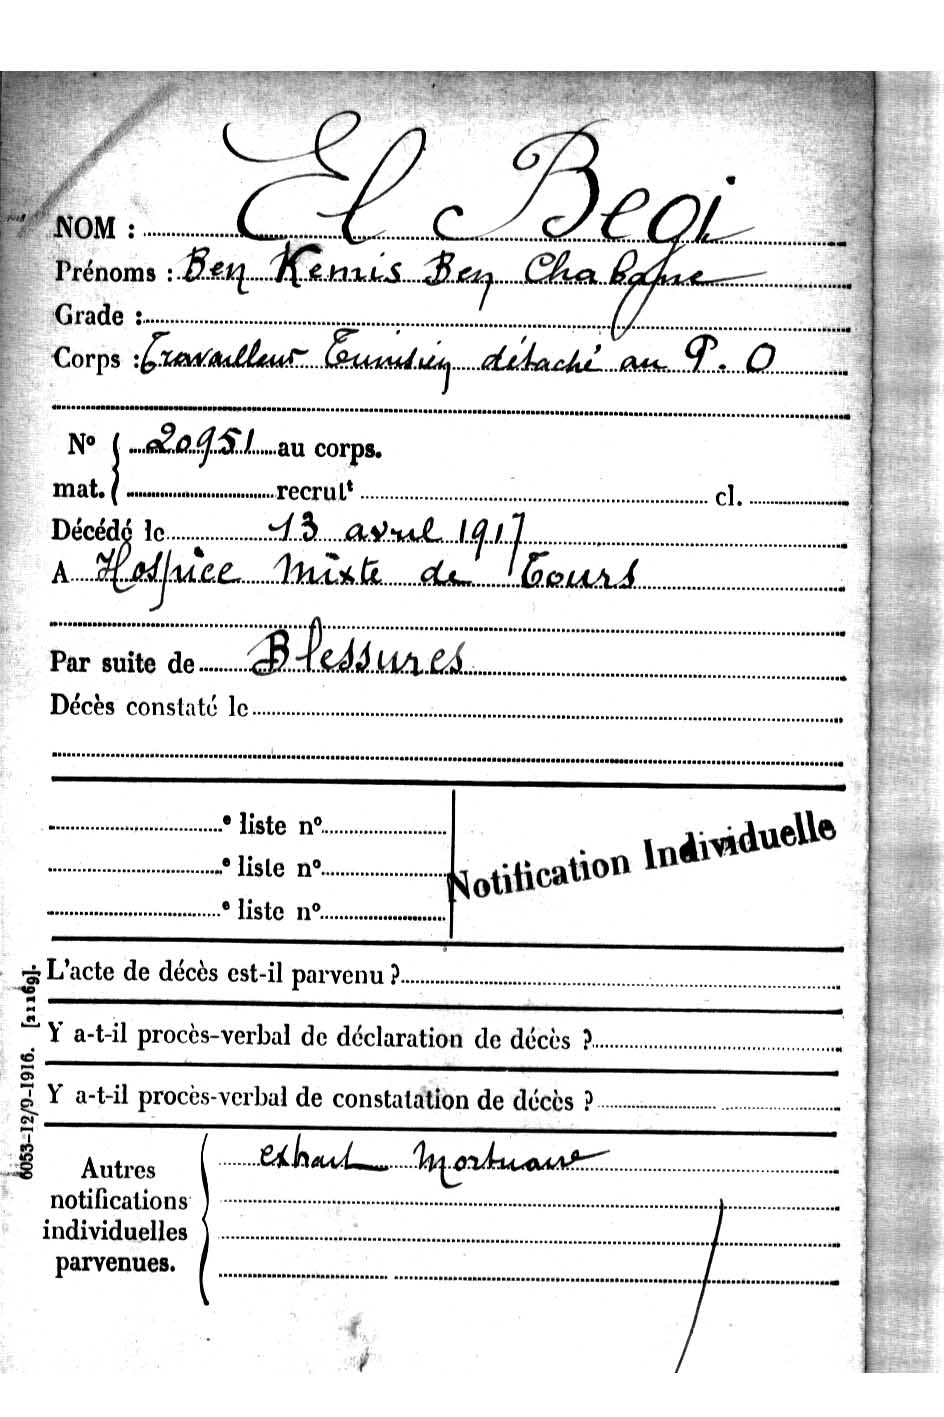 NOM : El Begi
Prénoms : Ben Kemis Ben Chabane
Grade :
Corps : Travailleur Tunisien détaché au P.O
Nº 20951 au corps.
mat. recrulᵗ cl.
Décédé le 13 avril 1917
A Hospice Mixte de Tours
Par suite de Blessures
Décès constaté le
e liste nº
e liste nº
e liste nº
Notification Individuelle
L'acte de décès est-il parvenu ?
Y a-t-il procès-verbal de déclaration de décès ?
Y a-t-il procès-verbal de constatation de décès ?
Autres notifications individuelles parvenues.
extrait Mortuaire
6053-12/9-1916. [21169].